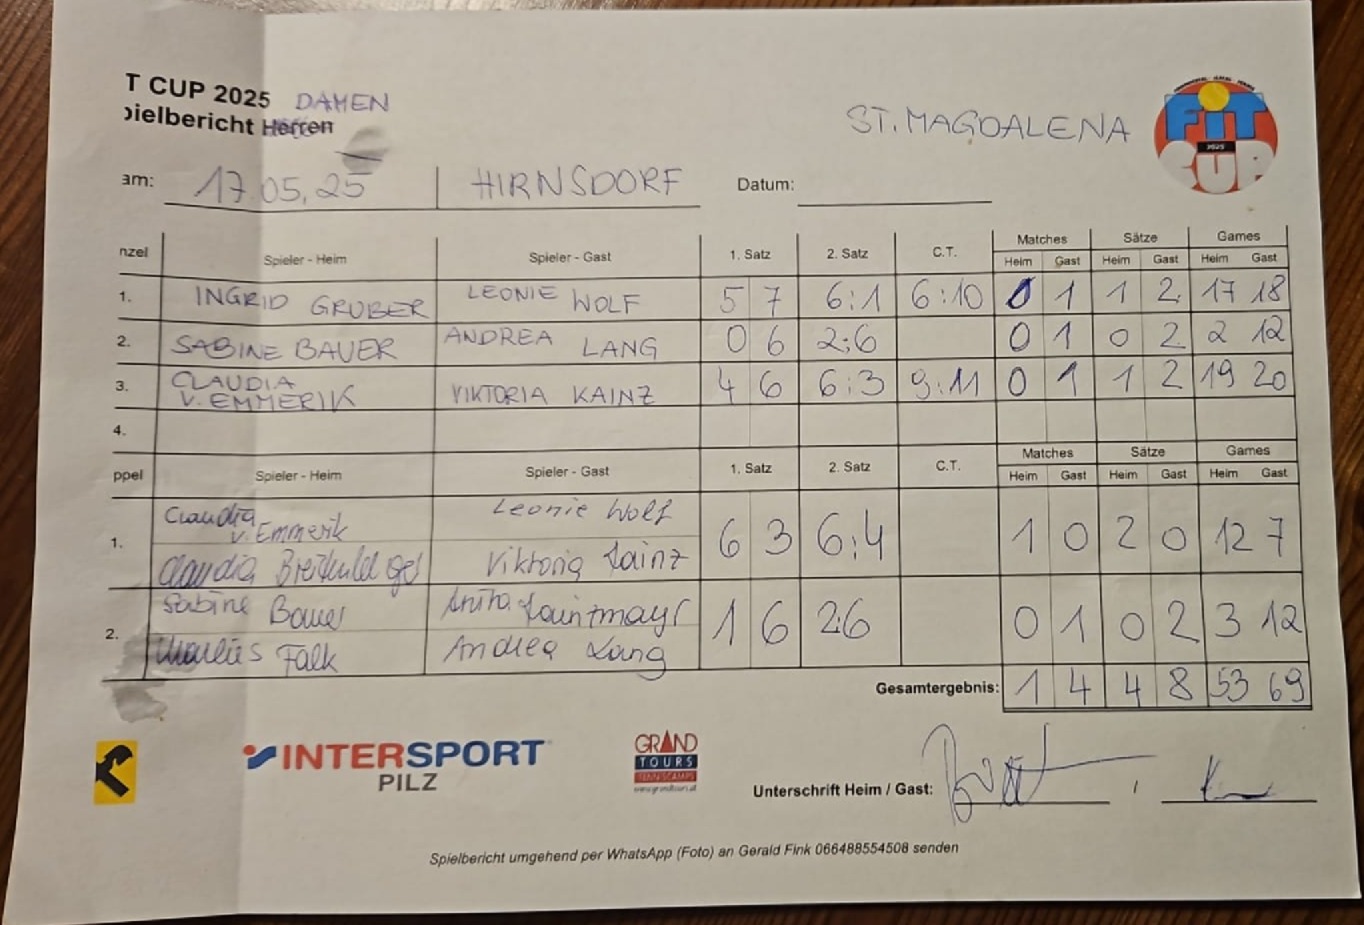 T CUP 2025 DAMEN
pielbericht Herren
ST. MAGDALENA
FIT
2025
CUP
am: 17.05.25 HIRNSDORF Datum:
nzel Spieler - Heim Spieler - Gast 1. Satz 2. Satz C.T. Matches Sätze Games
Heim Gast Heim Gast Heim Gast
1. INGRID GRUBER LEONIE WOLF 5 7 6:1 6:10 0 1 1 2 17 18
2. SABINE BAUER ANDREA LANG 0 6 2:6 0 1 0 2 2 12
3. CLAUDIA V. EMMERIK VIKTORIA KAINZ 4 6 6:3 9:11 0 1 1 2 19 20
4.
ppel Spieler - Heim Spieler - Gast 1. Satz 2. Satz C.T. Matches Sätze Games
Heim Gast Heim Gast Heim Gast
1. Claudia v. Emmerik Leonie Wolf 6 3 6:4 1 0 2 0 12 7
Claudia Viktoria Kainz
2. Sabine Bauer Anita 1 6 2:6 0 1 0 2 3 12
Falk Andrea Lang
Gesamtergebnis: 1 4 4 8 53 69
INTERSPORT
PILZ
GRAND
TOURS
TENNISCAMPS
www.grandtours.at
Unterschrift Heim / Gast:
Spielbericht umgehend per WhatsApp (Foto) an Gerald Fink 066488554508 senden